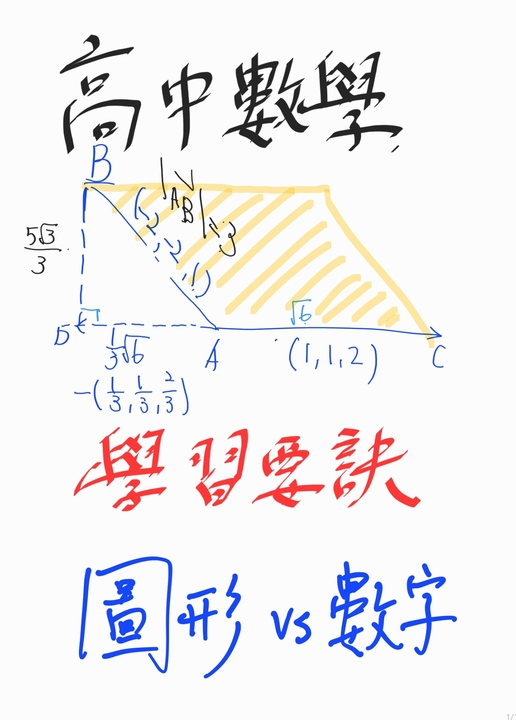 高中數學
B
|AB|=3
5√3/3
(-2,2,-1)
D
1/3√6
A
√6
(1,1,2)
C
-(1/3,1/3,2/3)
學習要訣
圖形 vs 數字